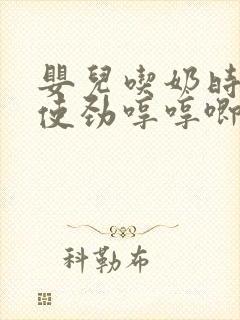 嬰兒喫奶時
使劲哼哼唧
科勒布